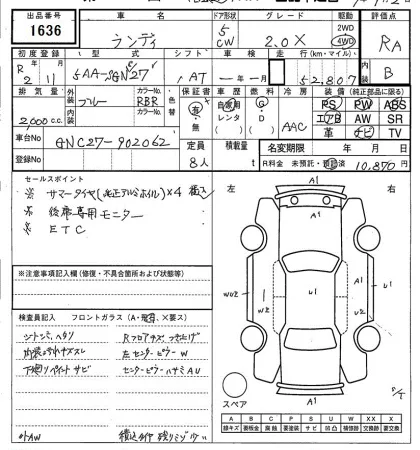 出品番号 車名 ドア形状 グレード 駆動 評価点
1636 ランディ 5 CW 2.0X 2WD 4WD RA
初度登録 型式 シフト 車検 走行(km・マイル) 内装
R 2 11 5AA-SGNC27 AT 年 月 52,807 B
排気量 外装 カラーNo. 色替 保証書 車歴 燃料 冷房 装備(純正部品に限る)
2,000 c.c. ブルー RBR 有・無 自家用 レンタ G D AAC PS PW ABS
エアB AW SR
革 ナビ TV
車台No GNC27-902062 定員 積載量 名変期限 年 月 日
登録No 8人 t R料金 未預託・預託済 10,870 円
セールスポイント
※ サマータイヤ(純正アルミホイル)×4 積込
※ 後席専用モニター
※ ETC
左 右
A1
A1
W02 W2 U1 A1
U2
A1
※注意事項記入欄(修復・不具合箇所および状態等)
検査員記入 フロントガラス(A・飛石、×要ス)
シートシミ、ヘタリ Rフロアサス突き上げ
内装汚れキズスレ 左センターピラーW
下廻りペイントサビ センターピラーハサミAU
外AW 積込タイヤ残りミゾ
スペア
A B C P S U W X XX X
線キズ 要板金 腐食 要塗装 サビ 凹凸 補修跡 要交換 交換済 割れ